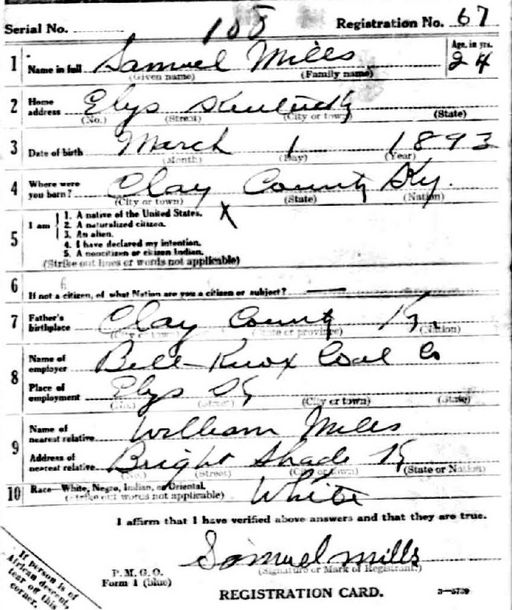 Serial No. 108 Registration No. 67
1 Name in full Samuel Mills Age, in yrs. 24
(Given name) (Family name)
2 Home address Elys Kentucky
(No.) (Street) (City or town) (State)
3 Date of birth March 1 1893
(Month) (Day) (Year)
4 Where were you born? Clay County Ky.
(City or town) (State) (Nation)
5 I am
1. A native of the United States. X
2. A naturalized citizen.
3. An alien.
4. I have declared my intention.
5. A noncitizen or citizen Indian.
(Strike out lines or words not applicable)
6 If not a citizen, of what Nation are you a citizen or subject? —
7 Father's birthplace Clay County Ky.
(City or town) (State or province) (Nation)
8 Name of employer Bell-Knox Coal Co
Place of employment Elys Ky
(No.) (Street) (City or town) (State)
9 Name of nearest relative William Mills
Address of nearest relative Bright Shade Ky
(No.) (Street) (City or town) (State or Nation)
10 Race—White, Negro, Indian, or Oriental. White
(Strike out words not applicable)
I affirm that I have verified above answers and that they are true.
Samuel Mills
(Signature or Mark of Registrant.)
P. M. G. O.
Form 1 (blue) REGISTRATION CARD. 3—5739
If person is of
African descent,
tear off this
corner.